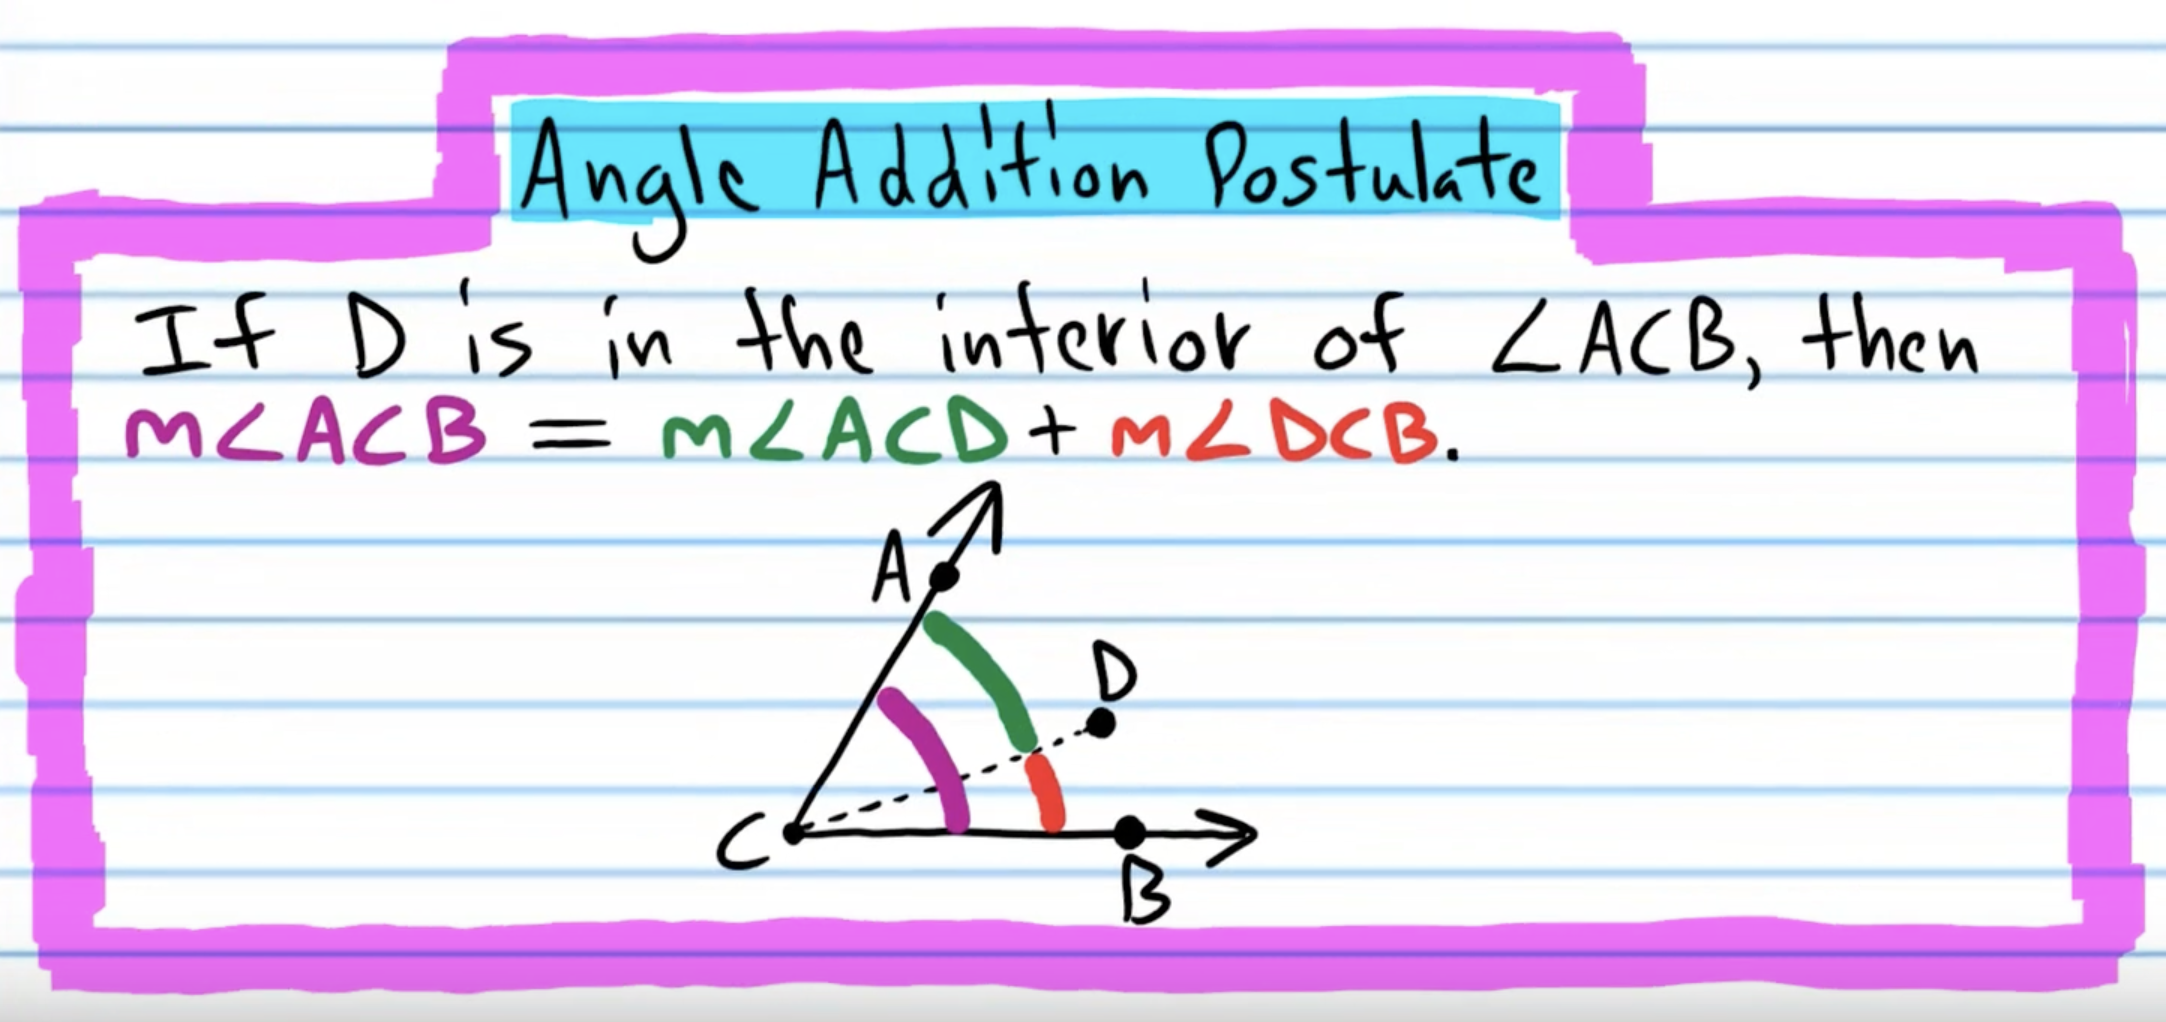 Angle Addition Postulate
If D is in the interior of ∠ACB, then
m∠ACB = m∠ACD + m∠DCB.
A
D
C
B